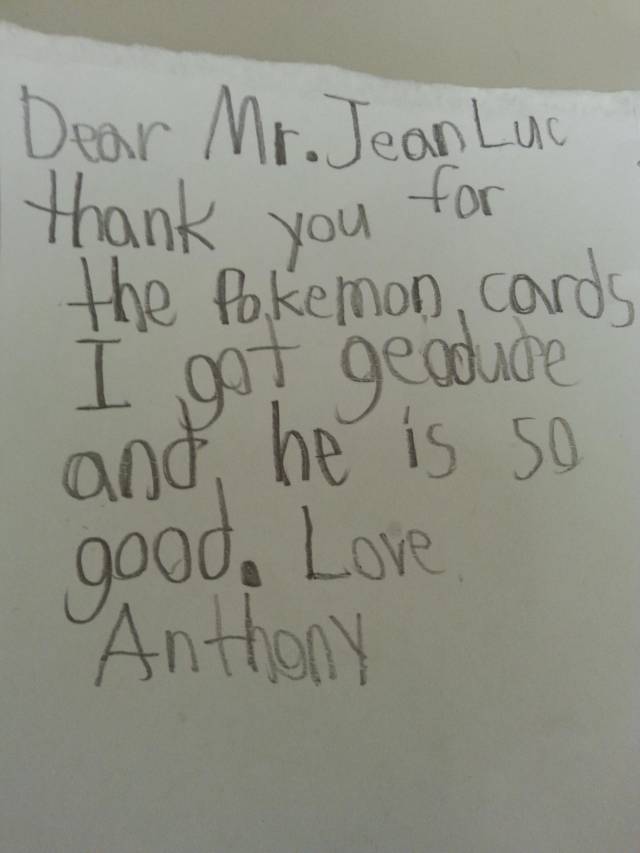 Dear Mr. Jean Luc
thank you for
the Pokemon cards
I got geodude
and he is so
good. Love
Anthony